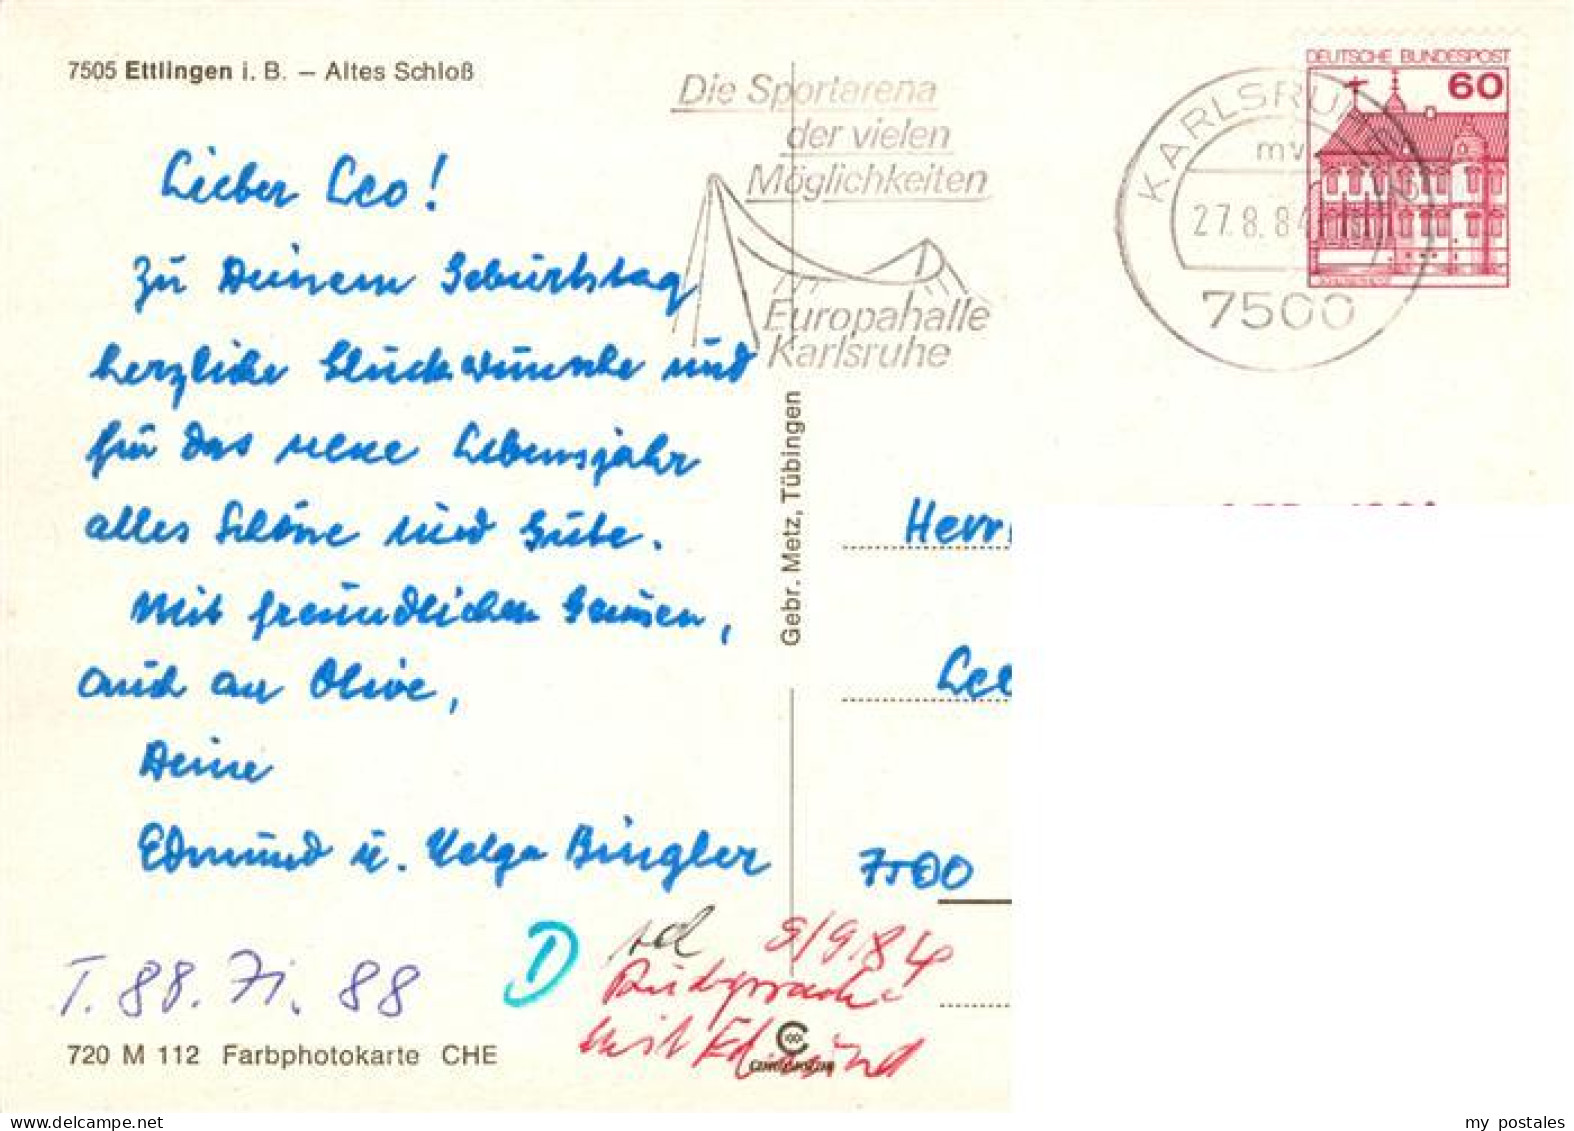 7505 Ettlingen i. B. – Altes Schloß
Lieber Leo!
Zu Deinem Geburtstag
herzliche Glückwünsche und
für das neue Lebensjahr
alles Schöne und Gute.
Mit freundlichen Grüßen,
auch an Olive,
Deine
Edmund u. Helga Bingler
T. 88. Zi. 88
D
9/9/84
Rücksprache
mit Edmund
720 M 112 Farbphotokarte CHE
Gebr. Metz, Tübingen
Die Sportarena
der vielen
Möglichkeiten
Europahalle
Karlsruhe
KARLSRUHE
mv
27.8.84
7500
DEUTSCHE BUNDESPOST
60
Herrn
7500
my postales